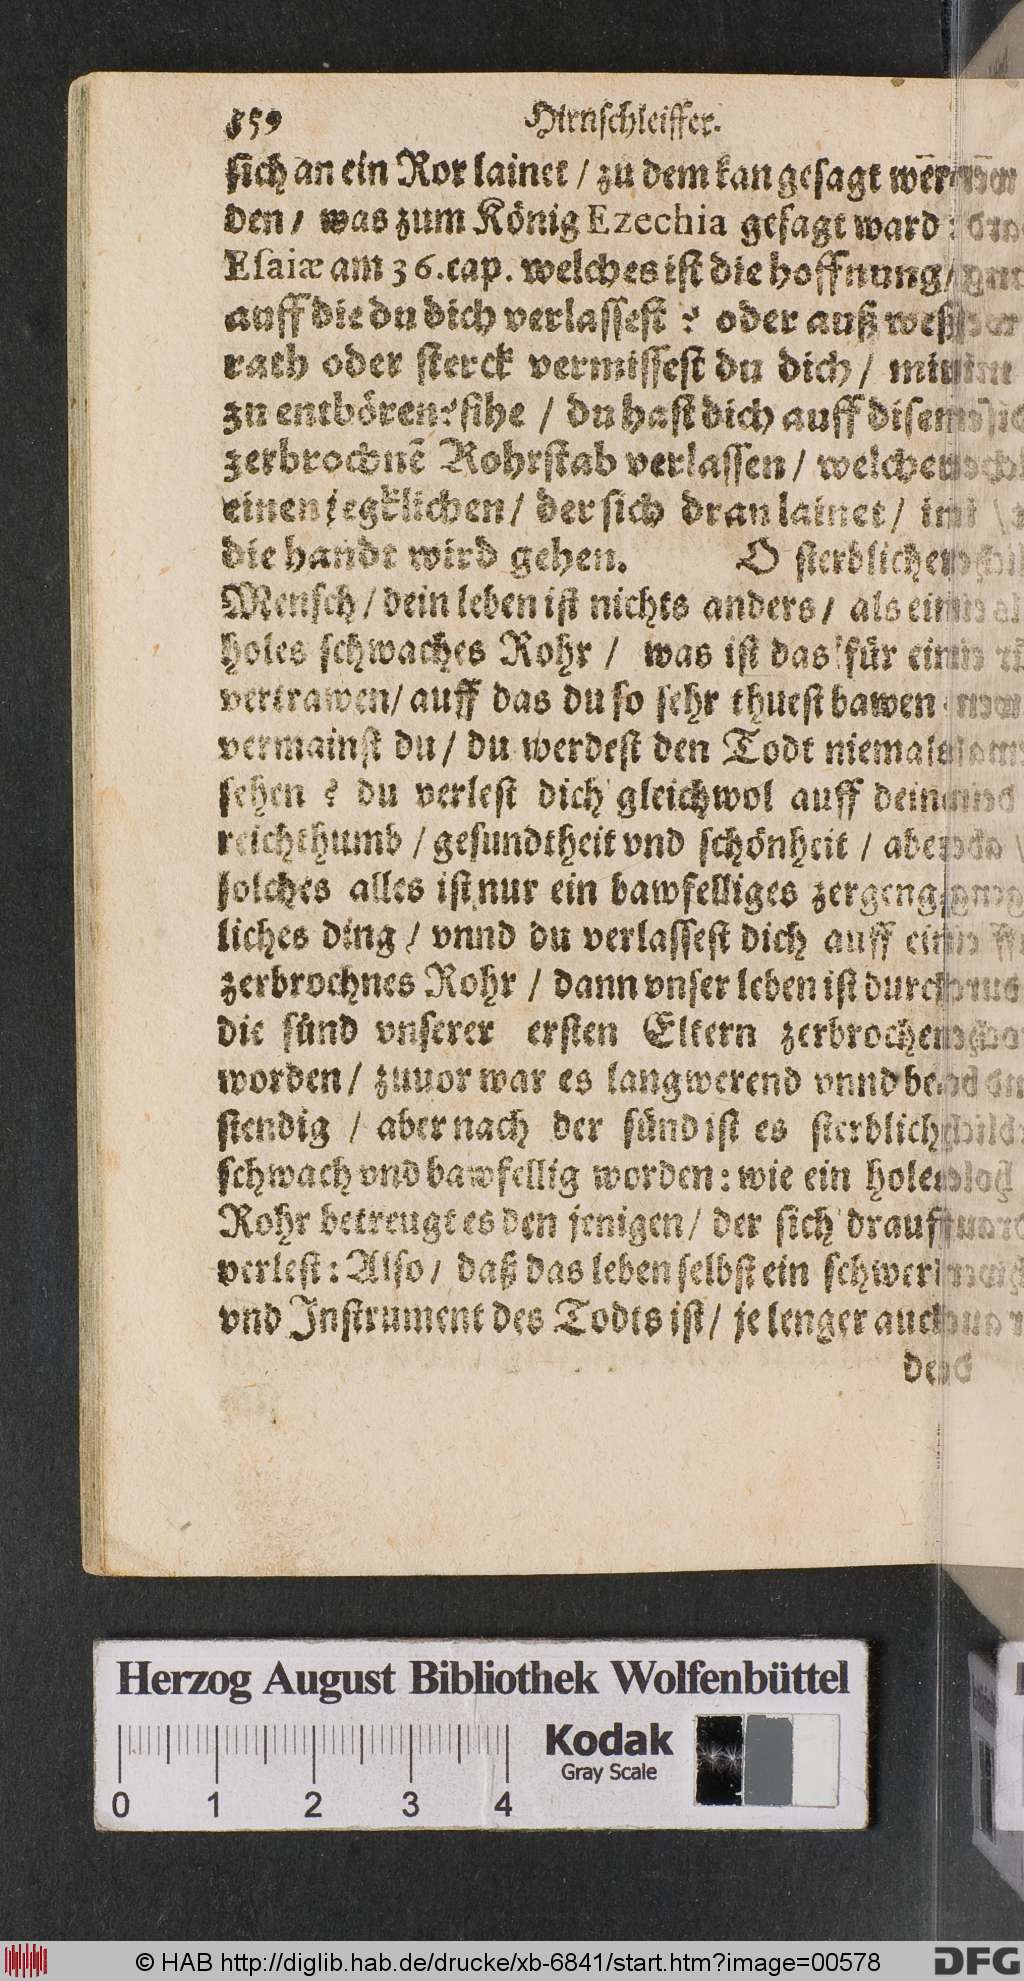 859 Hirnschleiffer.
sich an ein Ror lainet / zu dem kan gesagt wēr
den / was zum König Ezechia gesagt ward:
Esaiæ am 36. cap. welches ist die hoffnung /
auff die du dich verlassest? oder auß weß
rath oder sterck vermissest du dich / mir
zu entbören? sihe / du hast dich auff disem
zerbrochnē Rohrstab verlassen / welcher
einen jegklichen / der sich dran lainet / in
die handt wird gehen. O sterblicher
Mensch / dein leben ist nichts anders / als ein
holes schwaches Rohr / was ist das für ein
vertrawen / auff das du so sehr thuest bawen
vermainst du / du werdest den Todt niemals
sehen? du verlest dich gleichwol auff dein
reichthumb / gesundtheit vnd schönheit / aber
solches alles ist nur ein bawfelliges zergeng
liches ding / vnnd du verlassest dich auff ein
zerbrochnes Rohr / dann vnser leben ist durch
die sünd vnserer ersten Eltern zerbrochen
worden / zuuor war es langwerend vnnd be
stendig / aber nach der sünd ist es sterblich
schwach vnd bawfellig worden: wie ein holes
Rohr betreugt es den jenigen / der sich drauff
verlest: Also / daß das leben selbst ein schwert
vnd Instrument des Todts ist / je lenger auch
Herzog August Bibliothek Wolfenbüttel
Kodak
Gray Scale
0 1 2 3 4
© HAB http://diglib.hab.de/drucke/xb-6841/start.htm?image=00578
DFG